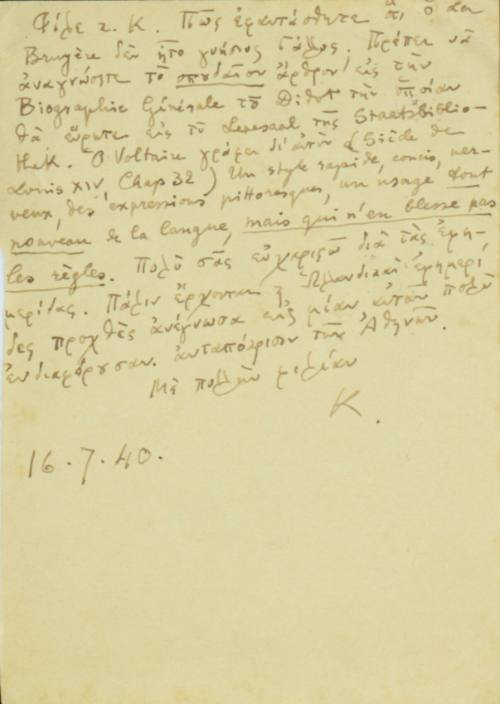 Φίλε κ. Κ. Πῶς ἐφαντάσθητε ὅτι ὁ La
Bruyère δὲν ἦτο γνήσιος Γάλλος. Πρέπει νὰ
ἀναγνώσητε τὸ σπουδαῖον ἄρθρον εἰς τὴν
Biographie Générale τοῦ Didot τὴν ὁποίαν
θὰ εὕρητε εἰς τὸ Lesesaal τῆς Staatsbiblio-
thek. Ὁ Voltaire γράφει δι' αὐτὸν (Siècle de
Louis XIV, Chap 32) Un style rapide, concis, ner-
veux, des expressions pittoresques, un usage tout
nouveau de la langue, mais qui n'en blesse pas
les règles. Πολὺ σᾶς εὐχαριστῶ διὰ τὰς ἐφη-
μερίδας. Πάλιν ἔρχονται ἐφημερί-
δες προχθὲς ἀνέγνωσα μίαν αὐτῶν πολὺ
ἐνδιαφέρουσαν ἀνταπόκρισιν τῶν Ἀθηνῶν.
Μὲ πολλὴν φιλίαν
Κ.
16.7.40.